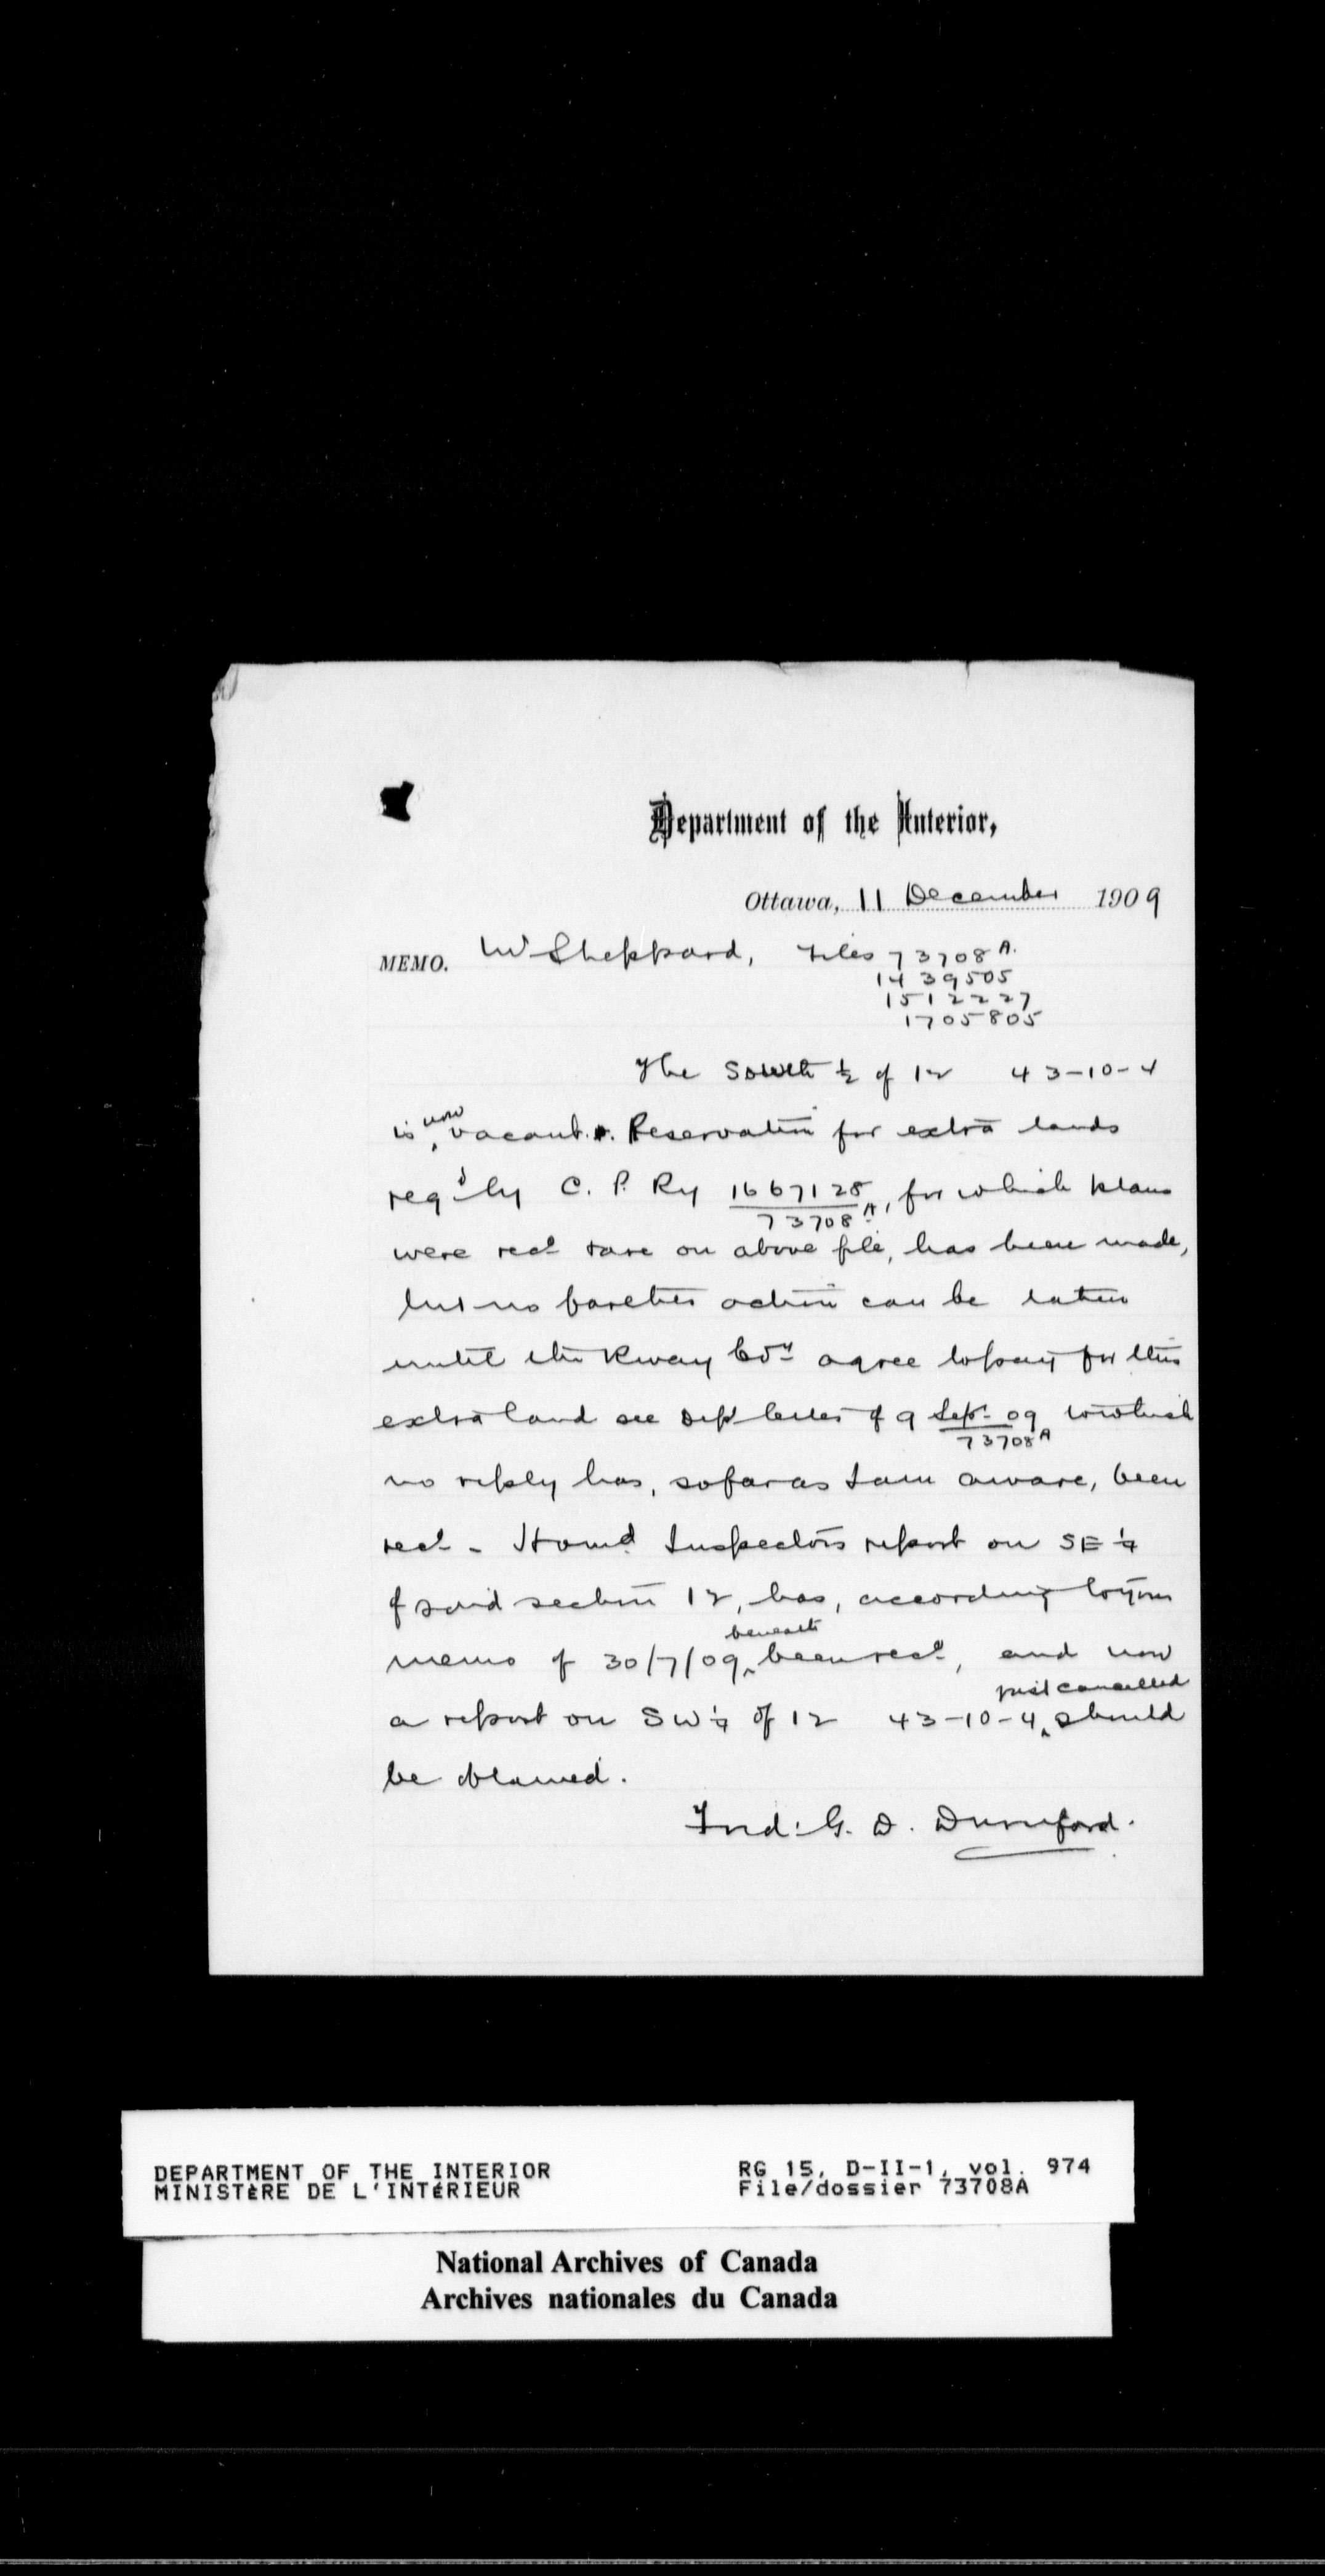 Department of the Interior,
Ottawa, 11 December 1909
MEMO. Mr Sheppard, Files 73708 A.
1439505
1512227
1705805
The South ½ of 12 43-10-4
is now vacant. Reservation for extra lands
reqd by C. P. Ry 1667128, for which plans
73708 A
were recd & are on above file, has been made,
but no further action can be taken
until the Rway Coy agree to pay for this
extra land see Dept letter of 9 Sept. 09 to which
73708 A
no reply has, so far as I am aware, been
recd - Homd Inspectors report on SE ¼
of said section 12, has, according to your
memo of 30/7/09, beneath
been recd, and now
a report on SW ¼ of 12 43-10-4, just cancelled
should
be obtained.
Fred: G. D. Durnford.
DEPARTMENT OF THE INTERIOR
MINISTÈRE DE L'INTÉRIEUR
RG 15, D-II-1, vol. 974
File/dossier 73708A
National Archives of Canada
Archives nationales du Canada